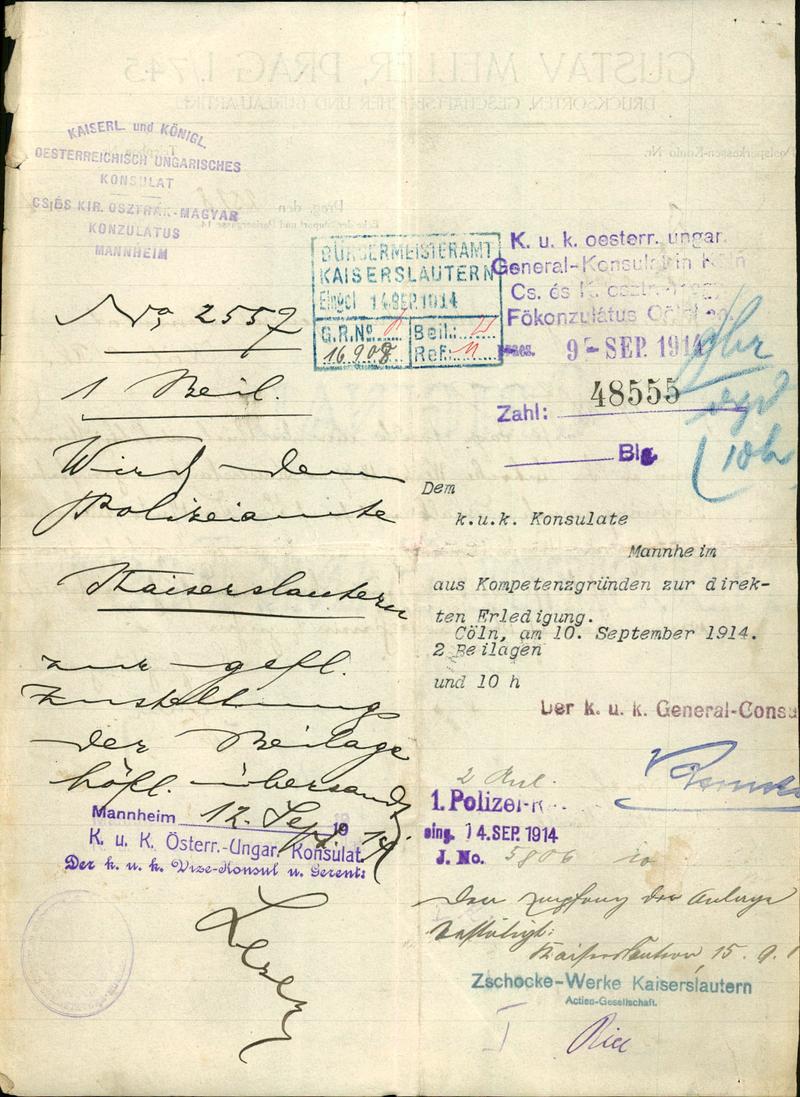 KAISERL. und KÖNIGL.
OESTERREICHISCH UNGARISCHES
KONSULAT
CS. ÉS KIR. OSZTRÁK-MAGYAR
KONZULÁTUS
MANNHEIM
No, 2557
1 Beil.
Wird dem
Polizeiamte
Kaiserslautern
zur gefl.
Zustellung
der Beilage
höfl. übersandt
Mannheim 12. Sept. 1914
K. u. K. Österr.-Ungar. Konsulat.
Der k. u. k. Vize-Konsul u. Gerent:
BÜRGERMEISTERAMT
KAISERSLAUTERN
Eingel 14 SEP. 1914
G.R.No.
Beil.:
16908
Ref.:
K. u. k. oesterr. ungar.
General-Konsulat in Köln
Cs. és K. osztr.
Fökonzulátus
9 - SEP. 1914
Zahl: 48555
Blg.
10h
Dem
k.u.k. Konsulate
Mannheim
aus Kompetenzgründen zur direk-
ten Erledigung.
Cöln, am 10. September 1914.
2 Beilagen
und 10 h
Der k. u. k. General-Consu
1. Polizei-
eing. 14. SEP. 1914
J. No. 5806
Den Empfang der Anlage
bestätigt:
Kaiserslautern, 15. 9. 1
Zschocke-Werke Kaiserslautern
Actien-Gesellschaft.
GUSTAV MELLER, PRAG I./745
DRUCKSORTEN, GESCHÄFTSBÜCHER UND BUREAU-ARTIKEL
Postsparkassen-Konto Nr.
Prag, den